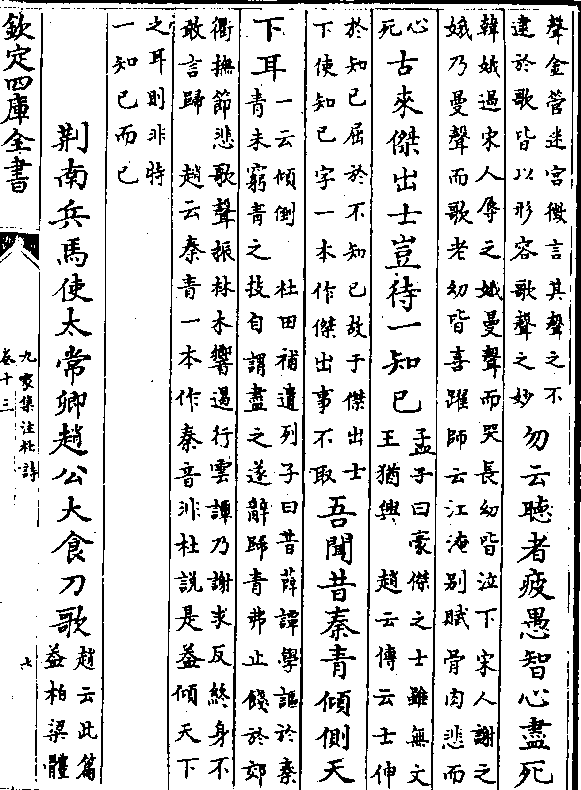 聲金管迷宮徵言其聲之不
逮於歌皆以形容歌聲之妙
勿云聴者疲愚智心盡死
韓娥過宋人辱之娥曼聲而哭長幼皆泣下宋人謝之
娥乃曼聲而歌老幼皆喜躍師云江淹别賦骨肉悲而
心
死
古來傑出士豈待一知已
孟子曰豪傑之士雖無文
王猶興 趙云傳云士伸
於知已屈於不知已故于傑出士
下使知已字一本作傑出事不取
吾聞昔秦青傾側天
下耳
一云傾倒 杜田補遺列子曰昔薛譚學謳於秦
青未窮青之技自謂盡之遂辭歸青弗止餞於郊
衢撫節悲歌聲振林木響遏行雲譚乃謝求反終身不
敢言歸 趙云秦青一本作秦音非杜說是葢傾天下
之耳則非特
一知已而已
荆南兵馬使太常卿趙公大食刀歌
趙云此篇
葢柏梁體
欽定四庫全書
九家集注杜詩
卷十三
七